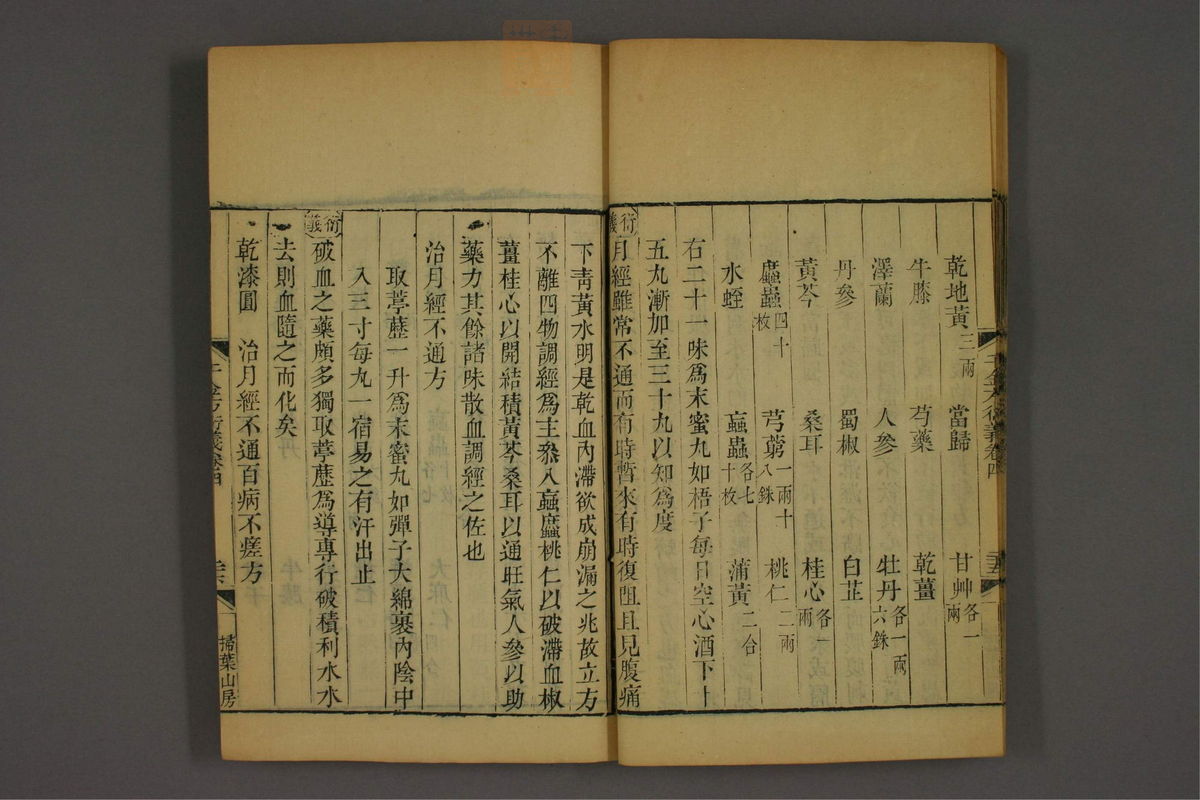 乾地黃三兩　當歸　甘艸各一兩
牛膝　芍藥　乾薑
澤蘭　人參　牡丹各一兩六銖
丹參　蜀椒　白芷
黃芩　桑耳　桂心各一兩
䗪蟲四十枚　芎藭一兩十八銖　桃仁二兩
水蛭　蝱蟲各七十枚　蒲黃二合
右二十一味爲末蜜丸如梧子每日空心酒下十
五丸漸加至三十丸以知爲度
衍義 月經雖常不通而有時暫來有時復阻且見腹痛
下青黃水明是乾血內滯欲成崩漏之兆故立方
不離四物調經爲主叅入蝱䗪桃仁以破滯血椒
薑桂心以開結積黃芩桑耳以通旺氣人參以助
藥力其餘諸味散血調經之佐也
治月經不通方
取葶藶一升爲末蜜丸如彈子大綿裹內陰中
入三寸每丸一宿易之有汗出止
衍義 破血之藥頗多獨取葶藶爲導專行破積利水水
去則血隨之而化矣
乾漆圓　治月經不通百病不瘥方
千金方衍義卷四
掃葉山房